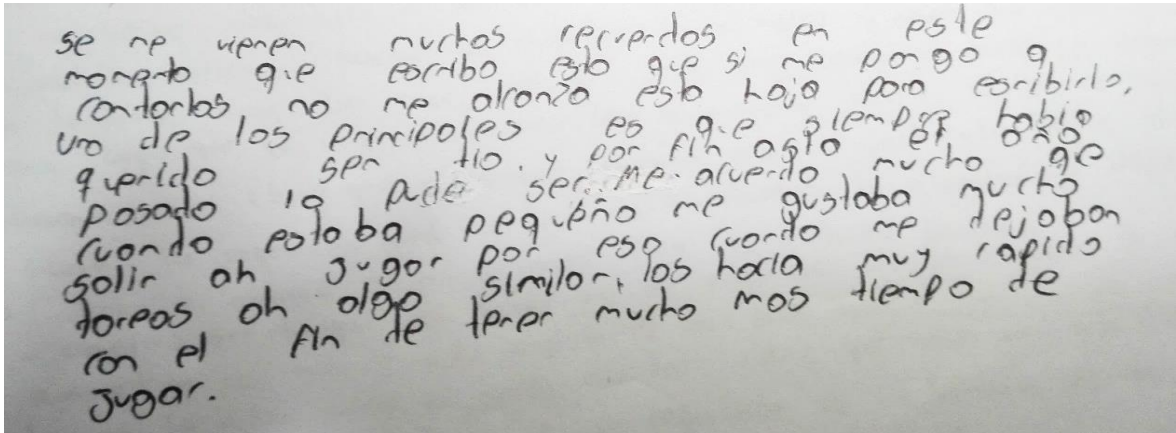 se me vienen muchos recuerdos en este
momento que escribo esto que si me pongo a
contarlos no me alcanza esta hoja para escribirlo,
uno de los principales es que siempre habia
querido ser tio. y por fin asta el año
pasado lo pude ser. me acuerdo mucho qe
cuando estaba pequeño me gustaba mucho
salir ah jugar por eso cuando me dejaban
tareas oh algo similar, los hacia muy rapido
con el fin de tener mucho mas tiempo de
jugar.